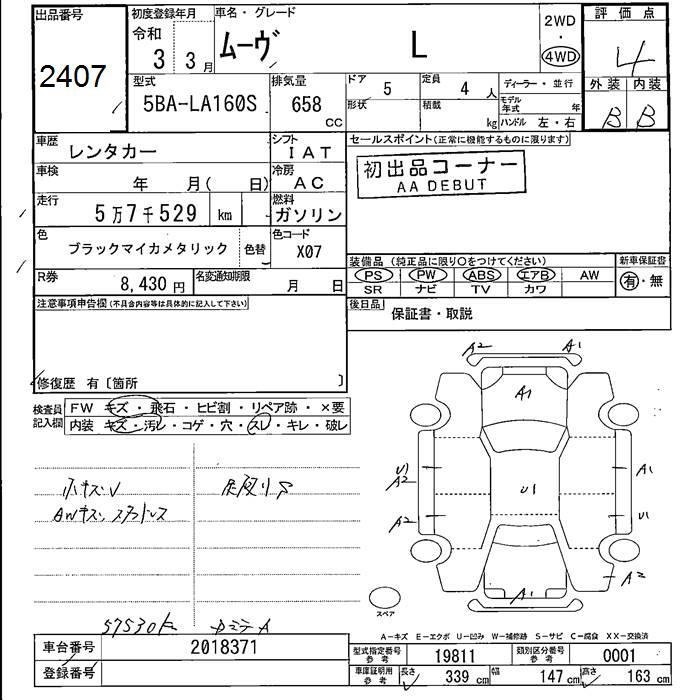 出品番号 初度登録年月 車名・グレード 2WD 評価点
令和 ムーヴ L ・
2407 3 3月 4WD 4
型式 排気量 ドア 5 定員 4人 ディーラー・並行 外装 内装
5BA-LA160S 658 CC 形状 積載 kg モデル年式 年 B B
ハンドル 左・右
車歴 レンタカー シフト IAT セールスポイント(正常に機能するものに限ります)
車検 年 月( 日) 冷房 AC 初出品コーナー
AA DEBUT
走行 5万7千529 km 燃料 ガソリン
色 ブラックマイカメタリック 色替 色コード X07
装備品(純正品に限り○をつけてください) 新車保証書
R券 8,430円 名変通知期限 月 日 PS PW ABS エアB AW 有・無
SR ナビ TV カワ
注意事項申告欄(不具合内容等は具体的に記入して下さい) 後日品 保証書・取説
修復歴 有〔箇所 〕
検査員記入欄 FW キズ・飛石・ヒビ割・リペア跡・×要
内装 キズ・汚レ・コゲ・穴・スレ・キレ・破レ
A2 A1
A1
U1 A2 A1
U1
A2 U1
A2
A1
スペア
小キズV
AWキズ
57530K
A-キズ E-エクボ U-凹み W-補修跡 S-サビ C-腐食 XX-交換済
車台番号 2018371 型式指定番号 参考 19811 類別区分番号 参考 0001
登録番号 車庫証明用 参考 長さ 339 cm 幅 147 cm 高さ 163 cm